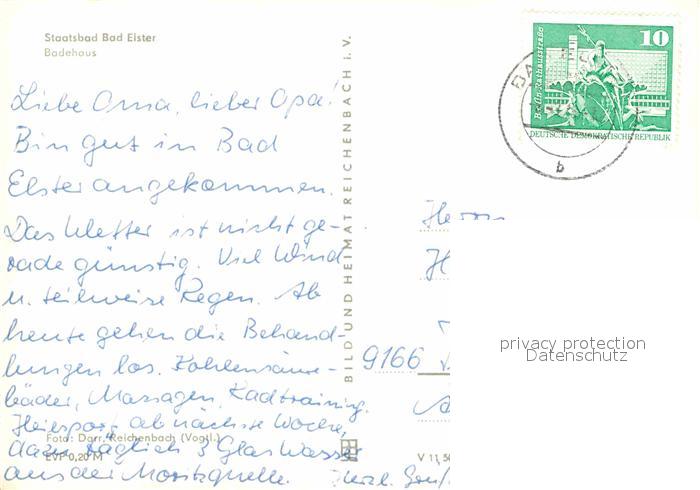 Staatsbad Bad Elster
Badehaus
Liebe Oma, lieber Opa!
Bin gut in Bad
Elster angekommen.
Das Wetter ist nicht ge-
rade günstig. Viel Wind
u. teilweise Regen. Ab
heute gehen die Behand-
lungen los. Kohlensäure-
bäder, Massagen, Radtraining,
Heilsport ab nächste Woche,
dazu täglich 3 Glas Wasser
aus der Moritzquelle. Herzl.
Foto: Darr, Reichenbach (Vogtl.)
EVP 0,20 M
BILD UND HEIMAT REICHENBACH i. V.
V 11 50
10
Berlin, Rathausstraße
DEUTSCHE DEMOKRATISCHE REPUBLIK
BAD
b
Herrn
H
9166
privacy protection
Datenschutz